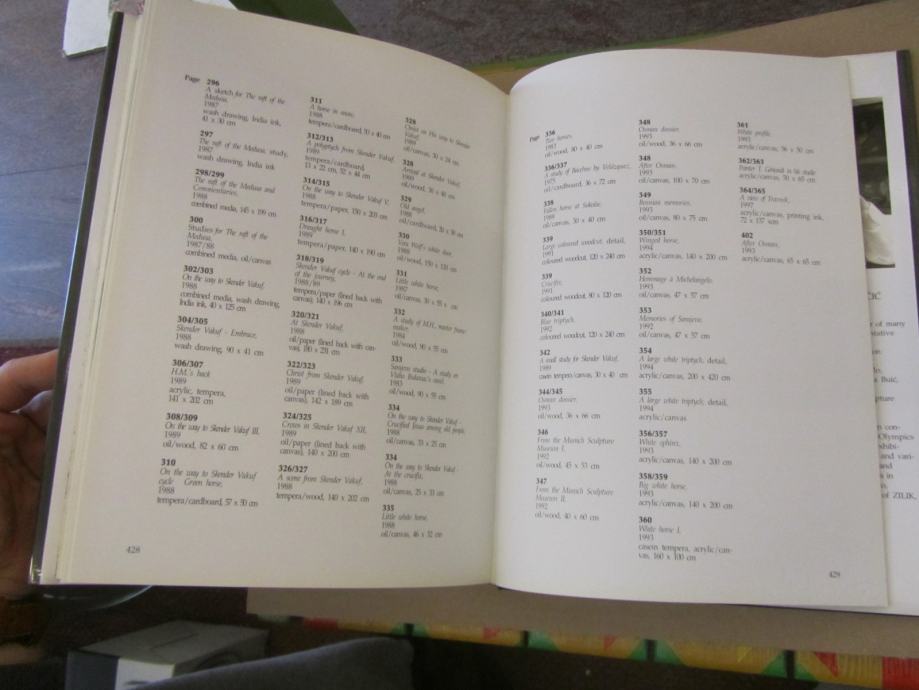 Page 296
A sketch for The raft of the
Medusa,
1987
wash drawing, India ink,
41 x 30 cm
297
The raft of the Medusa, study,
1987
wash drawing, India ink
298/299
The raft of the Medusa and
Commentaries,
1988
combined media, 145 x 199 cm
300
Studies for The raft of the
Medusa,
1987/88
combined media, oil/canvas
302/303
On the way to Skender Vakuf
1988
combined media, wash drawing,
India ink, 40 x 125 cm
304/305
Skender Vakuf - Embrace,
1988
wash drawing, 90 x 41 cm
306/307
H.M.'s back
1989
acrylic, tempera,
141 x 202 cm
308/309
On the way to Skender Vakuf III,
1989
oil/wood, 82 x 60 cm
310
On the way to Skender Vakuf
cycle Green horse,
1988
tempera/cardboard, 57 x 50 cm
311
A horse in snow,
1988
tempera/cardboard, 50 x 40 cm
312/313
A polyptych from Skender Vakuf,
1989
tempera/cardboard,
13 x 22 cm, 52 x 44 cm
314/315
On the way to Skender Vakuf V,
1988
tempera/paper, 150 x 203 cm
316/317
Draught horse I,
1989
tempera/paper, 140 x 190 cm
318/319
Skender Vakuf cycle - At the end
of the journey,
1988/89
tempera/paper (lined back with
canvas), 140 x 196 cm
320/321
At Skender Vakuf,
1988
oil/paper (lined back with can-
vas), 150 x 231 cm
322/323
Christ from Skender Vakuf,
1989
oil/paper (lined back with
canvas), 142 x 189 cm
324/325
Crosses in Skender Vakuf XII,
1989
oil/paper (lined back with
canvas), 140 x 200 cm
326/327
A scene from Skender Vakuf,
1988
tempera/wood, 140 x 202 cm
328
Christ on His way to Skender
Vakuf
1989
oil/canvas, 30 x 24 cm
328
Arrival at Skender Vakuf,
1989
oil/wood, 36 x 46 cm
329
Old angel,
1988
oil/cardboard, 30 x 38 cm
330
Vera Wolf's white door,
1988
oil/wood, 150 x 120 cm
331
Little white horse,
1987
oil/canvas, 30 x 55 cm
332
A study of M.H., master frame-
maker,
1984
oil/wood, 90 x 55 cm
333
Sarajevo studio - A study on
Vlaho Bukovac's motif,
1983
oil/wood, 90 x 55 cm
334
On the way to Skender Vakuf -
Crucified Jesus among old people,
1988
oil/canvas, 33 x 25 cm
334
On the way to Skender Vakuf -
At the crucifix,
1988
oil/canvas, 25 x 33 cm
335
Little white horse,
1988
oil/canvas, 46 x 32 cm
428
Page 336
Two horses,
1983
oil/wood, 80 x 40 cm
336/337
A study of Bacchus by Velázquez,
1975
oil/cardboard, 36 x 72 cm
338
Fallen horse at Sokolac,
1989
oil/canvas, 30 x 40 cm
339
Large coloured woodcut, detail,
1991
coloured woodcut, 120 x 240 cm
339
Crucifix,
1991
coloured woodcut, 80 x 120 cm
340/341
Blue triptych,
1992
coloured woodcut, 120 x 240 cm
342
A small study for Skender Vakuf,
1989
casein tempera/canvas, 30 x 40 cm
344/345
Osman dossier,
1993
oil/wood, 36 x 66 cm
346
From the Munich Sculpture
Museum I,
1992
oil/wood, 45 x 53 cm
347
From the Munich Sculpture
Museum II,
1992
oil/wood, 40 x 60 cm
348
Osman dossier,
1993
oil/wood, 36 x 66 cm
348
After Osman,
1993
oil/canvas, 100 x 70 cm
349
Bosnian memories,
1993
oil/canvas, 60 x 75 cm
350/351
Winged horse,
1994
acrylic/canvas, 140 x 200 cm
352
Hommage à Michelangelo,
1993
oil/canvas, 47 x 57 cm
353
Memories of Sarajevo,
1992
oil/canvas, 47 x 57 cm
354
A large white triptych, detail,
1994
acrylic/canvas, 200 x 420 cm
355
A large white triptych, detail,
1994
acrylic/canvas
356/357
White sphinx,
1993
acrylic/canvas, 140 x 200 cm
358/359
Big white horse,
1993
acrylic/canvas, 140 x 200 cm
360
White horse I,
1993
casein tempera, acrylic/can-
vas, 160 x 100 cm
361
White profile,
1993
acrylic/canvas, 36 x 50 cm
362/363
Painter I. in his studio
acrylic/canvas, 50 x 65 cm
364/365
A view of Travnik,
1997
acrylic/canvas, printing ink,
72 x 137 cm
402
After Osman,
1993
acrylic/canvas, 65 x 65 cm
429
of many
con-
Olympics
and vari-
and
s in
of ZILIK,